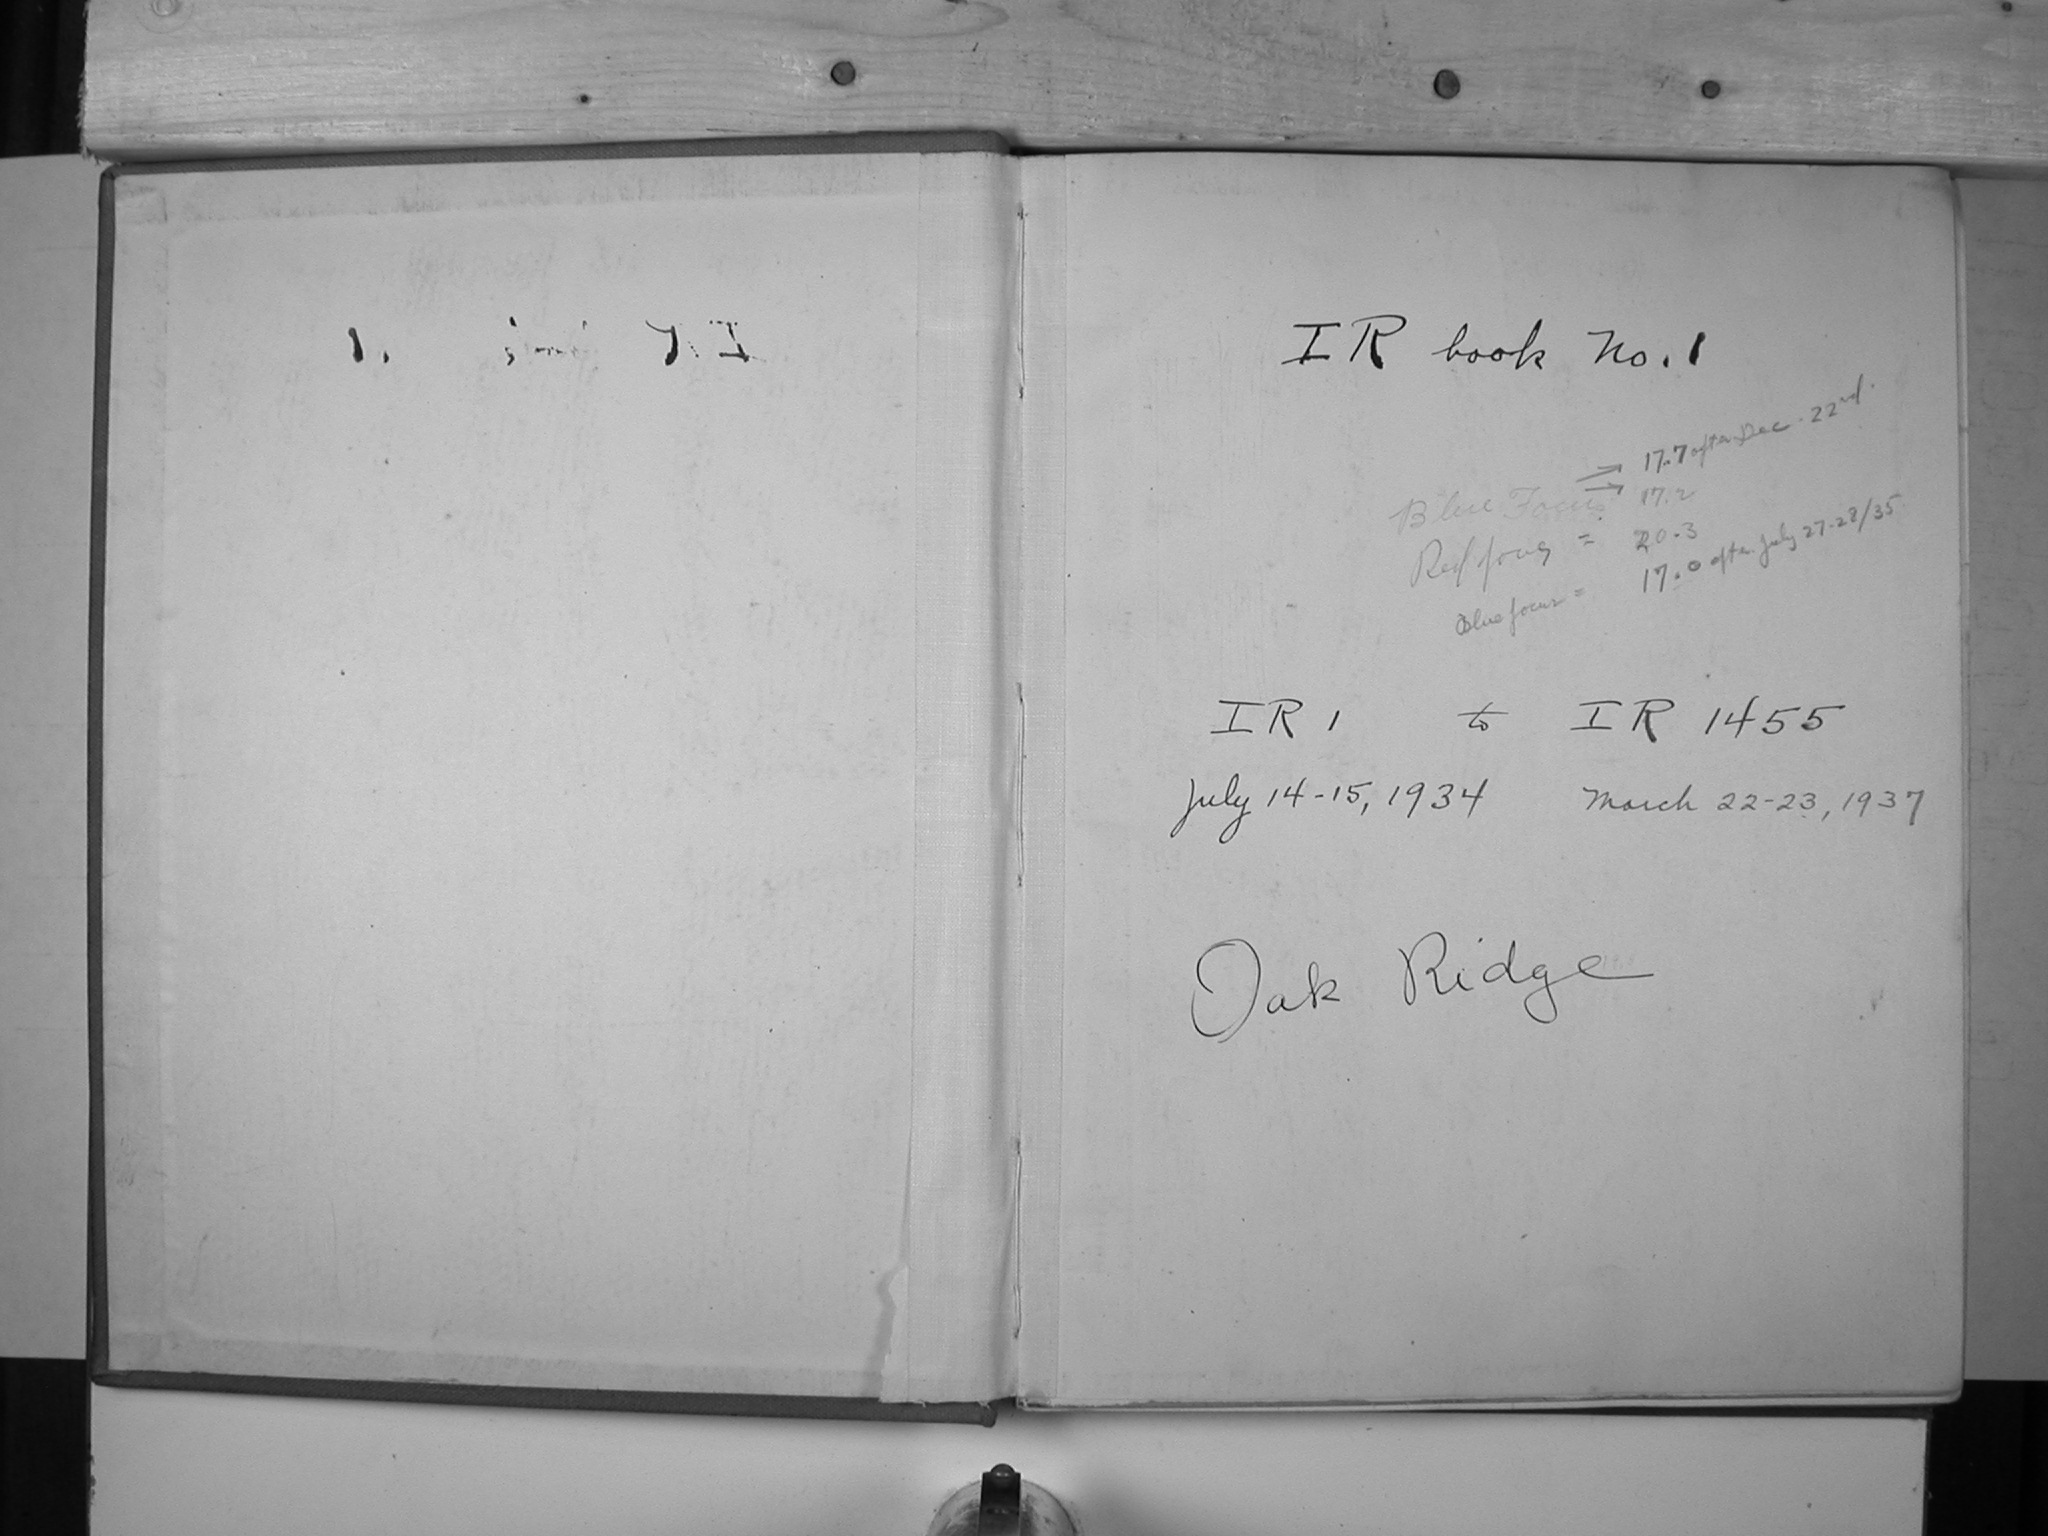 IR book No. 1
17.7 after Dec. 22nd.
Blue Focus 17.2
Red focus = 20.3
Blue focus = 17.0 after July 27-28/35
IR 1 to IR 1455
July 14-15, 1934 March 22-23, 1937
Oak Ridge